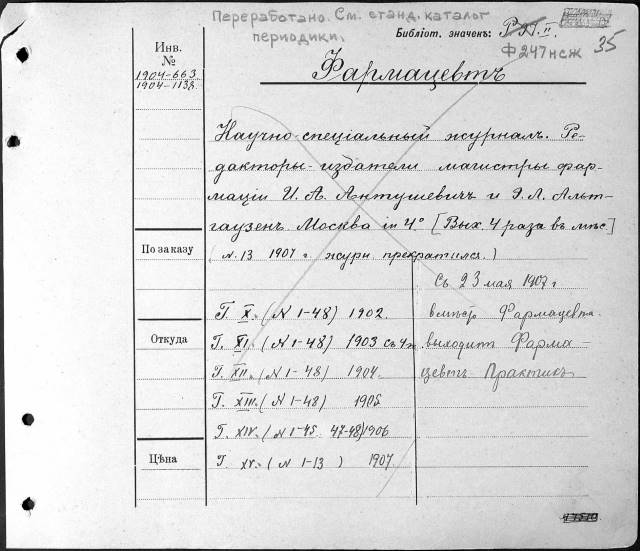 Переработано. См. станд. каталог
периодики.
Библіот. значекъ:
Ф 247 нсж
35
Инв.
№
1904-663
1904-1132.
Фармацевтъ
Научно-спеціальный журналъ. Ре-
дакторы-издатели магистры фар-
маціи И. А. Антушевичъ и Э. Л. Альт-
гаузенъ. Москва in 4° [Вых. 4 раза въ мѣс.]
По заказу
(N. 13 1907 г. журн. прекратился.)
Съ 23 мая 1907 г
вмѣсто Фармацевта
выходитъ Фарма-
цевтъ Практикъ
Г. X. (N 1-48) 1902.
Откуда
Г. XI. (N 1-48) 1903 съ
Г. XII. (N 1-48) 1904.
Г. XIII. (N 1-48) 1905
Г. XIV. (N 1-45 47-48) 1906
Цѣна
Г. XV. (N 1-13) 1907.